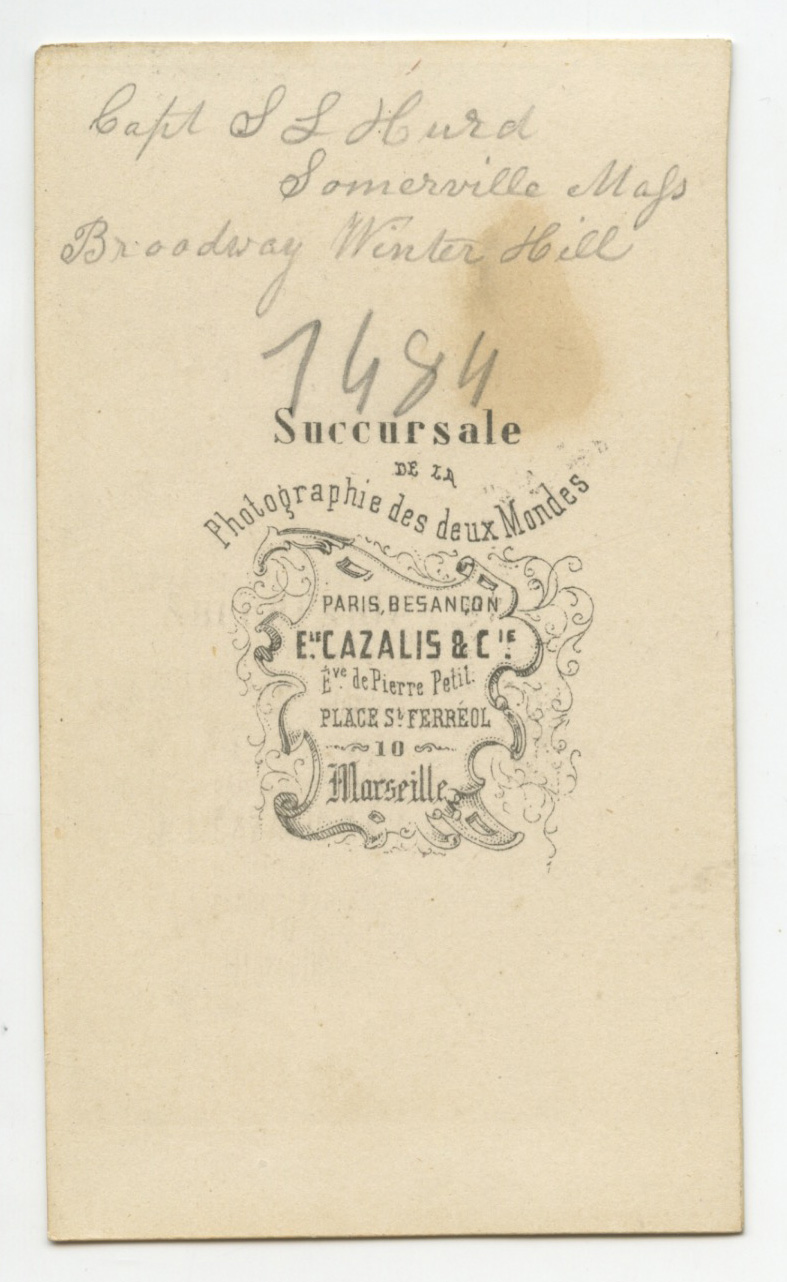 Capt S L Hurd
Somerville Mass
Broadway Winter Hill
1484
Succursale
DE LA
Photographie des deux Mondes
PARIS, BESANÇON
Ele. CAZALIS & Cie.
Êve. de Pierre Petit.
PLACE St. FERRÉOL
10
Marseille